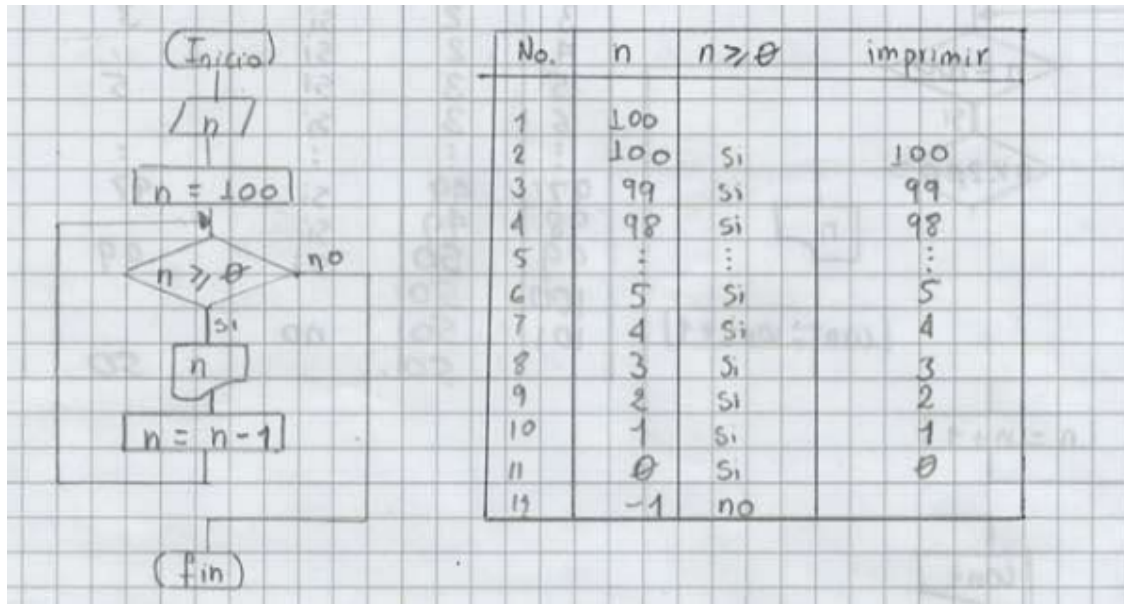 Inicio
n
n = 100
n ≥ 0
no
si
n
n = n - 1
fin
No. n n ≥ 0 imprimir
1 100
2 100 si 100
3 99 si 99
4 98 si 98
5 ⋮ ⋮ ⋮
6 5 si 5
7 4 si 4
8 3 si 3
9 2 si 2
10 1 si 1
11 0 si 0
-1 no